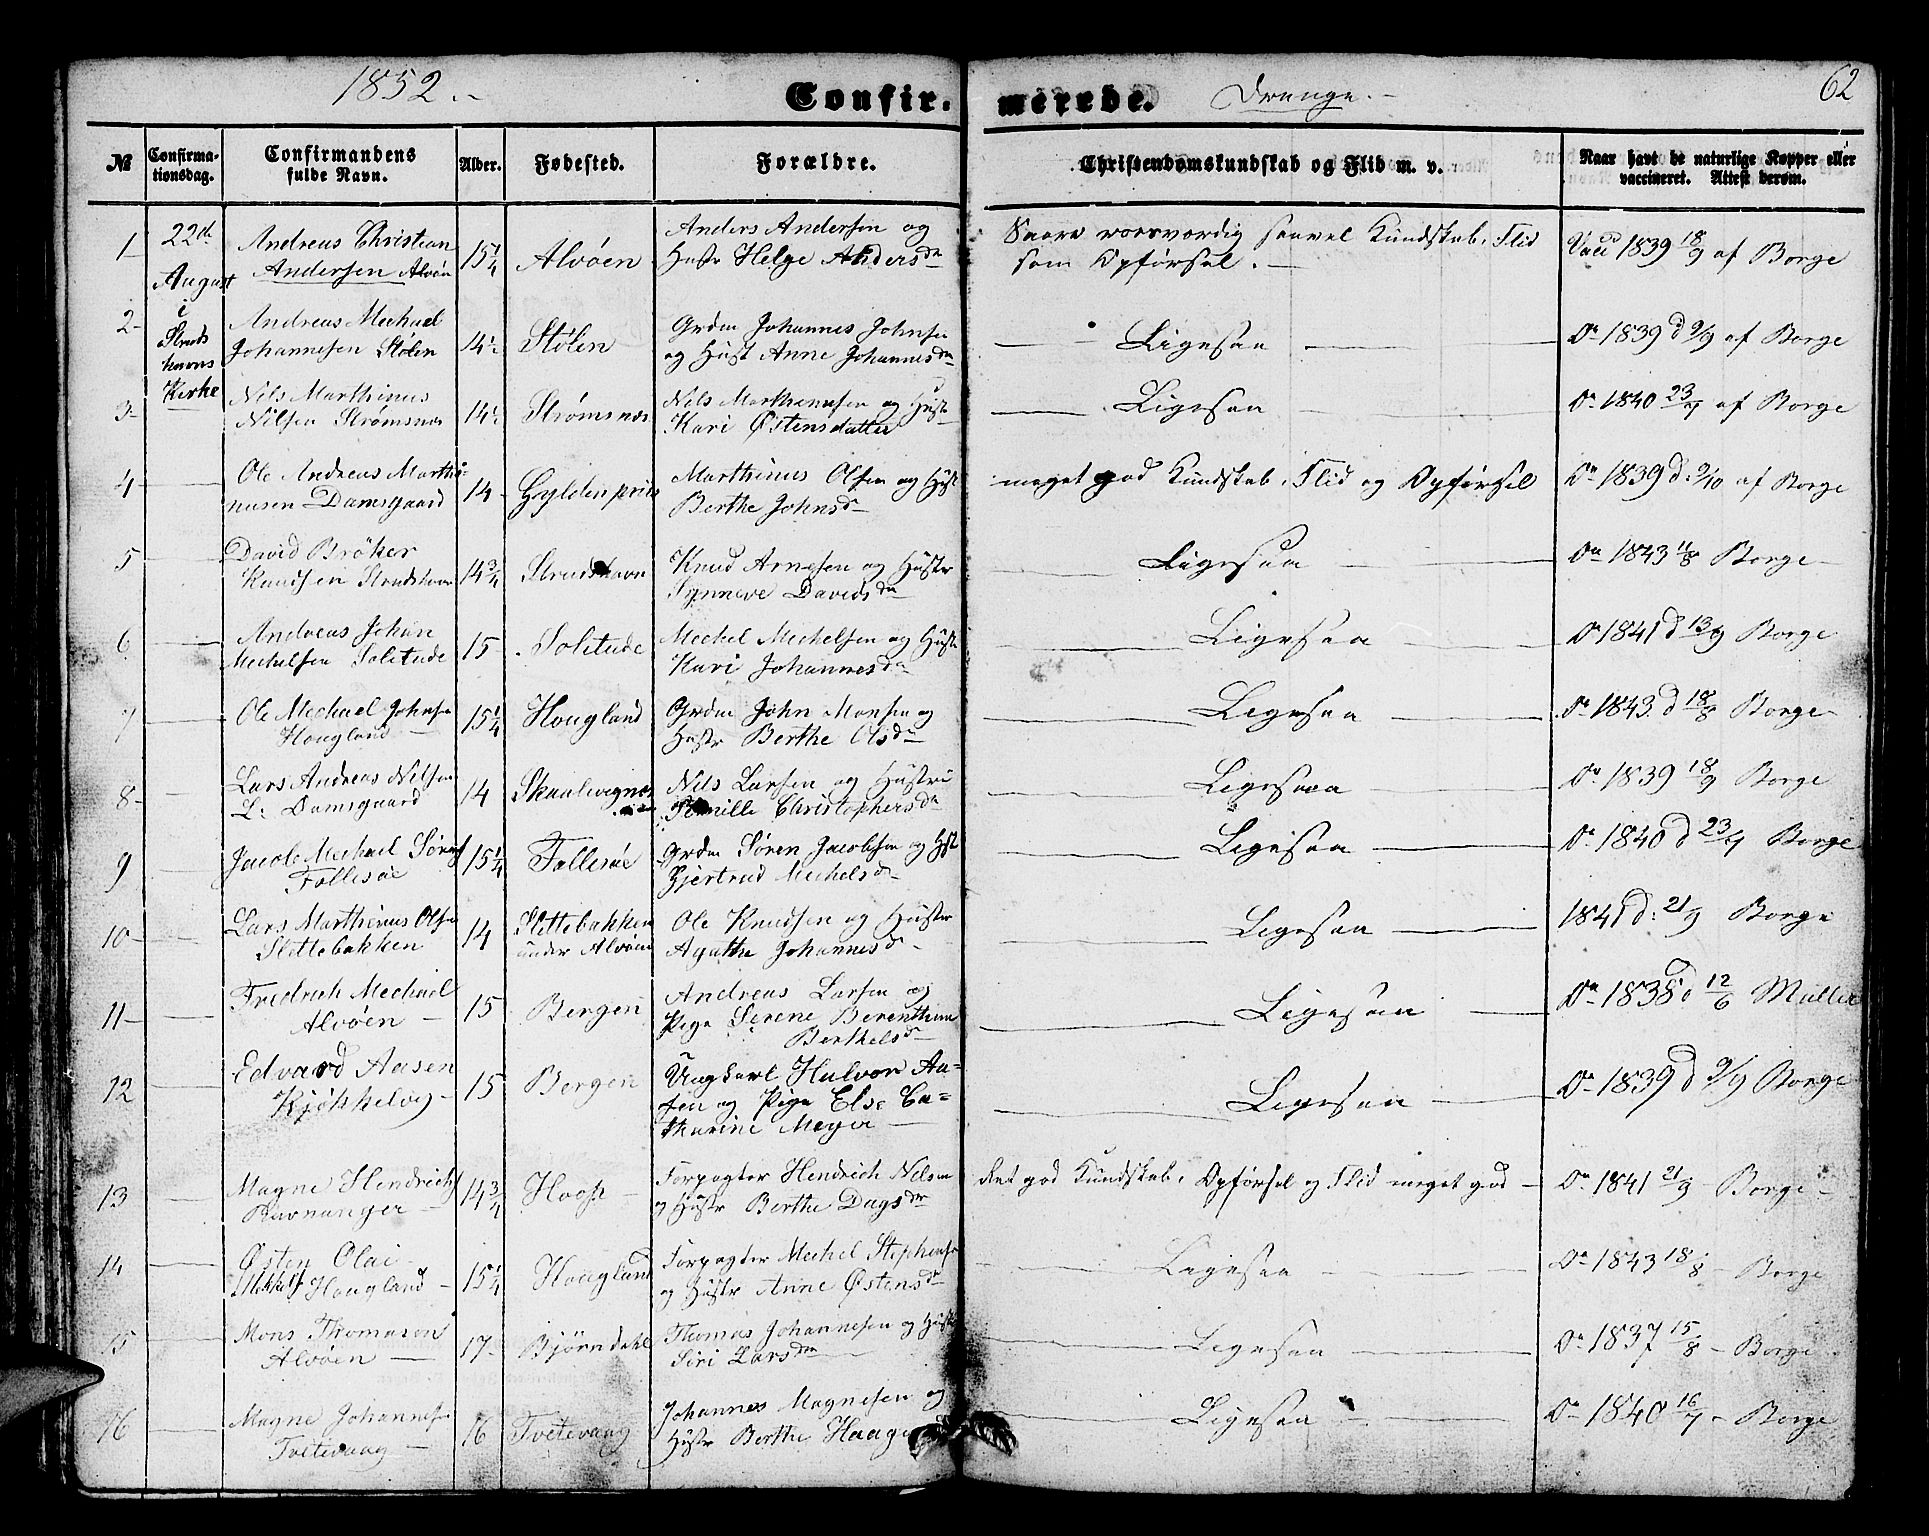 1852.
Confir-
merede.
Drenge.
62
№
Confirma-
tionsdag.
Confirmandens
fulde Navn.
Alder.
Fødested.
Forældre.
Christendomskundskab og Flid m. v.
Naar havt de naturlige Kopper eller
vaccineret. Attest derom.
22de August i Strudshavns Kirke
1 Andreas Christian
Andersen Alvøen
15¼ Alvøen
Anders Andersen og
Hustr Helge Andersdr
Saare roesværdig saavel Kundskab, Flid
som Opførsel.
Vacc 1839 18/9 af Borge
2 Andreas Mechael
Johannesen Stølen
14½ Stølen
Grdm Johannes Johnsen
og Hust Anne Johannesdr
Ligesaa
Do 1839 d 9/9 af Borge
3 Nils Marthinus
Nilsen Strømsnæs
14½ Strømsnæs
Nils Marthinusen og Hust
Kari Østensdatter
Ligesaa
Do 1840 23/7 af Borge
4 Ole Andreas Marthi-
nusen Damsgaard
14 Gyldenpriis
Marthinus Olsen og Hust
Berthe Johnsdr
meget god Kundskab, Flid og Opførsel
Do 1839 d: 9/10 af Borge
5 David Brøker
Knudsen Strudshavn
14¾ Strudshavn
Knud Arnesen og Hustr
Synneve Davidsdr
Ligesaa
Do 1843 11/8 Borge
6 Andreas Johan
Mechelsen Solitude
15 Solitude
Mechel Mechelsen og Hust
Kari Johannesdr
Ligesaa
Do 1841 d 13/9 Borge
7 Ole Mechael Johnsen
Hougland
15¼ Hougland
Grdm John Monsen og
Hustr Berthe Olsdr
Ligesaa
Do 1843. d 18/8 Borge
8 Lars Andreas Nilsen
L: Damsgaard
14 Skaalevignæs
Nils Larsen og Hustru
Pernille Christophersdr
Ligesaa
Do 1839 18/9 Borge
9 Jacob Mechael Sørens
Follesøe
15¼ Follesøe
Grdm Søren Jacobsen og Hst
Gjertrud Mechelsdr
Ligesaa
Do 1840 d 23/7 Borge
10 Lars Marthinus Olsen
Slettebakken
14 Slettebakken
under Alvøen
Ole Knudsen og Hustr
Agathe Johannesdr
Ligesaa
1841 d: 21/9 Borge
11 Fredrich Mechael
Alvøen
15 Bergen
Andreas Larsen og
Pige Serene Berenthine
Berthelsdr
Ligesaa
Do 1838 d 12/6 Müller
12 Edvard Aasen
Kjøkkelvig
15 Bergen
Ungkarl Halvor Aa-
sen og Pige Else Ca-
tharine Meyer
Ligesaa
Do 1839 d 9/9 Borge
13 Magne Hendrichs
Ravnanger
14¾ Hoop
Forpagter Hendrich Nilsen
og Hustr Berthe Dagsdr
Ret god Kundskab, Opførsel og Flid meget god
Do 1841 21/9 Borge
14 Østen Olai
Mekkels Hougland
15¼ Hougland
Forpagter Mechel Stephensen
og Hustr Anne Østensdr
Ligesaa
Do 1843 18/8 Borge
15 Mons Thomasen
Alvøen
17 Bjørndahl
Thomas Johannesen og Hustr
Siri Larsdr
Ligesaa
Do 1837 15/8 Borge
16 Magne Johannesen
Tvetevaag
16 Tvetevaag
Johannes Magnesen og
Hustr Berthe Haage
Ligesaa
Do 1840 16/7 Borge